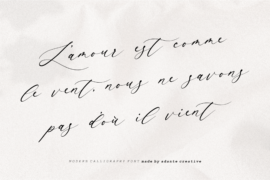 L'amour est comme
le vent, nous ne savons
pas d'où il vient
MODERN CALLIGRAPHY FONT made by adorae creative